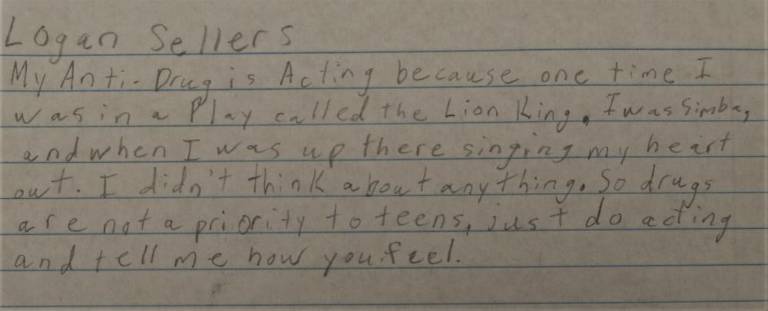 Logan Sellers
My Anti-Drug is Acting because one time I
was in a Play called the Lion King. I was Simba,
and when I was up there singing my heart
out. I didn't think about anything. So drugs
are not a priority to teens, just do acting
and tell me how you feel.